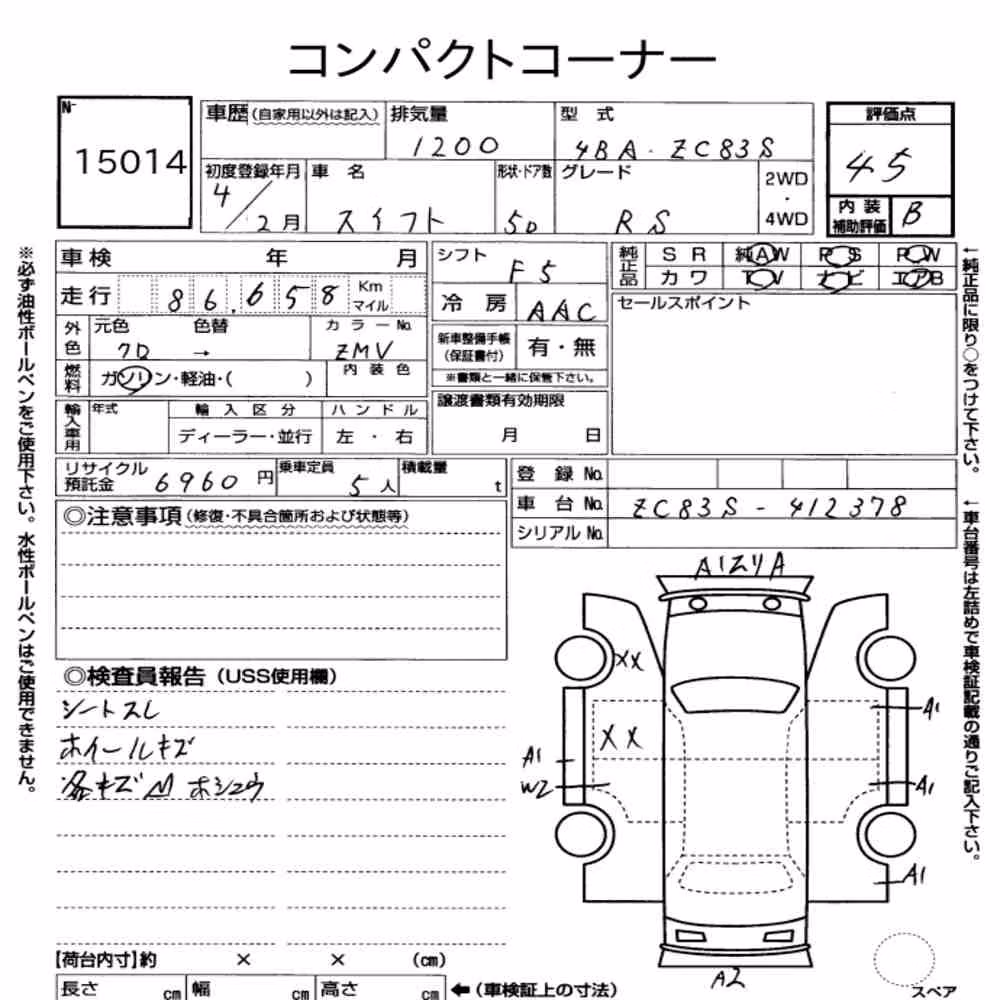 コンパクトコーナー
№
15014
車歴(自家用以外は記入) 排気量 型 式 評価点
1200 4BA-ZC83S 4.5
初度登録年月 車 名 形状・ドア数 グレード 2WD・4WD
4/2月 スイフト 5D RS
内装補助評価 B
車検 年 月
走行 86,658 Km マイル
シフト F5
冷 房 AAC
純正品 S R 純AW P S P W
カ ワ T V ナビ エアB
外色 元色 色替 カラーNo.
クロ → ZMV
燃料 ガソリン・軽油・( ) 内装色
新車整備手帳(保証書付) 有・無
※書類と一緒に保管下さい。
セールスポイント
輸入車用 年式 輸入区分 ハンドル
ディーラー・並行 左・右
譲渡書類有効期限
月 日
リサイクル預託金 6960円 乗車定員 5人 積載量 t
登 録 No.
車 台 No. ZC83S-412378
シリアル No.
◎注意事項(修復・不具合箇所および状態等)
◎検査員報告(USS使用欄)
シートスレ
ホイールキズ
各キズ凹ホシュウ
A1 A
XX
XX
A1
W2
A1
A1
A1
A2
【荷台内寸】約 × × (cm)
長さ cm 幅 cm 高さ cm ←(車検証上の寸法)
スペア
※必ず油性ボールペンをご使用下さい。水性ボールペンはご使用できません。
←純正品に限り○をつけて下さい。
←車台番号は左詰めで車検証記載の通りご記入下さい。